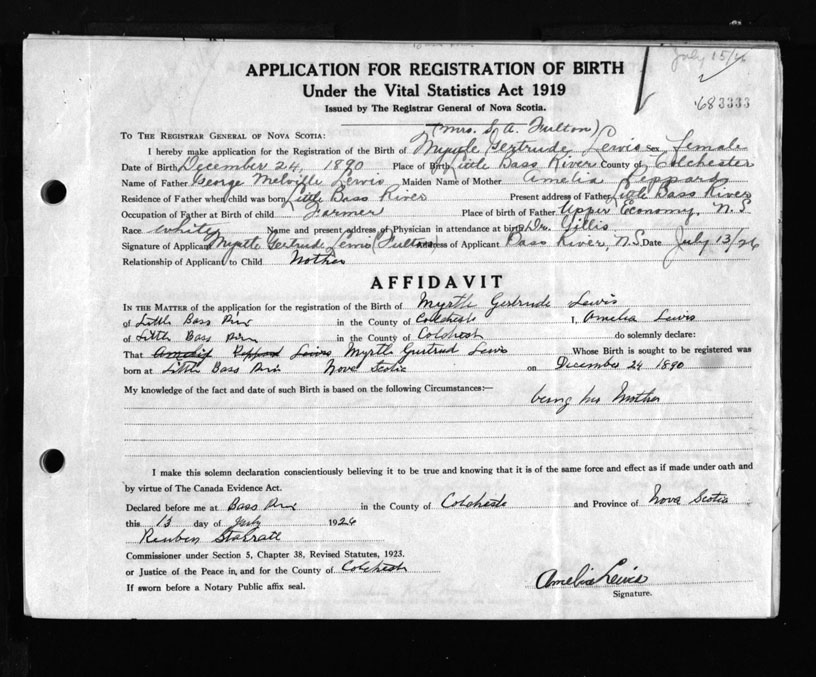 July 15/26
APPLICATION FOR REGISTRATION OF BIRTH
Under the Vital Statistics Act 1919
Issued by The Registrar General of Nova Scotia.
683333
(Mrs. S. A. Fulton)
TO THE REGISTRAR GENERAL OF NOVA SCOTIA:
I hereby make application for the Registration of the Birth of Myrtle Gertrude Lewis Sex female
Date of Birth December 24, 1890 Place of Birth Little Bass River County of Colchester
Name of Father George Melville Lewis Maiden Name of Mother Amelia Peppard
Residence of Father when child was born Little Bass River Present address of Father Little Bass River
Occupation of Father at Birth of child Farmer Place of birth of Father Upper Economy, N.S
Race White Name and present address of Physician in attendance at birth Dr. Gillis
Signature of Applicant Myrtle Gertrude Lewis (Fulton) Address of Applicant Bass River, N.S. Date July 13/26
Relationship of Applicant to Child Mother
AFFIDAVIT
IN THE MATTER of the application for the registration of the Birth of Myrtle Gertrude Lewis
of Little Bass River in the County of Colchester I, Amelia Lewis
of Little Bass River in the County of Colchester do solemnly declare:
That Amelia Peppard Lewis Myrtle Gertrud Lewis Whose Birth is sought to be registered was
born at Little Bass River Nova Scotia on December 24 1890
My knowledge of the fact and date of such Birth is based on the following Circumstances:—
being her Mother
I make this solemn declaration conscientiously believing it to be true and knowing that it is of the same force and effect as if made under oath and
by virtue of The Canada Evidence Act.
Declared before me at Bass River in the County of Colchester and Province of Nova Scotia
this 13 day of July 1926
Reuben Starratt
Commissioner under Section 5, Chapter 38, Revised Statutes, 1923.
or Justice of the Peace in, and for the County of Colchester
If sworn before a Notary Public affix seal.
Amelia Lewis
Signature.